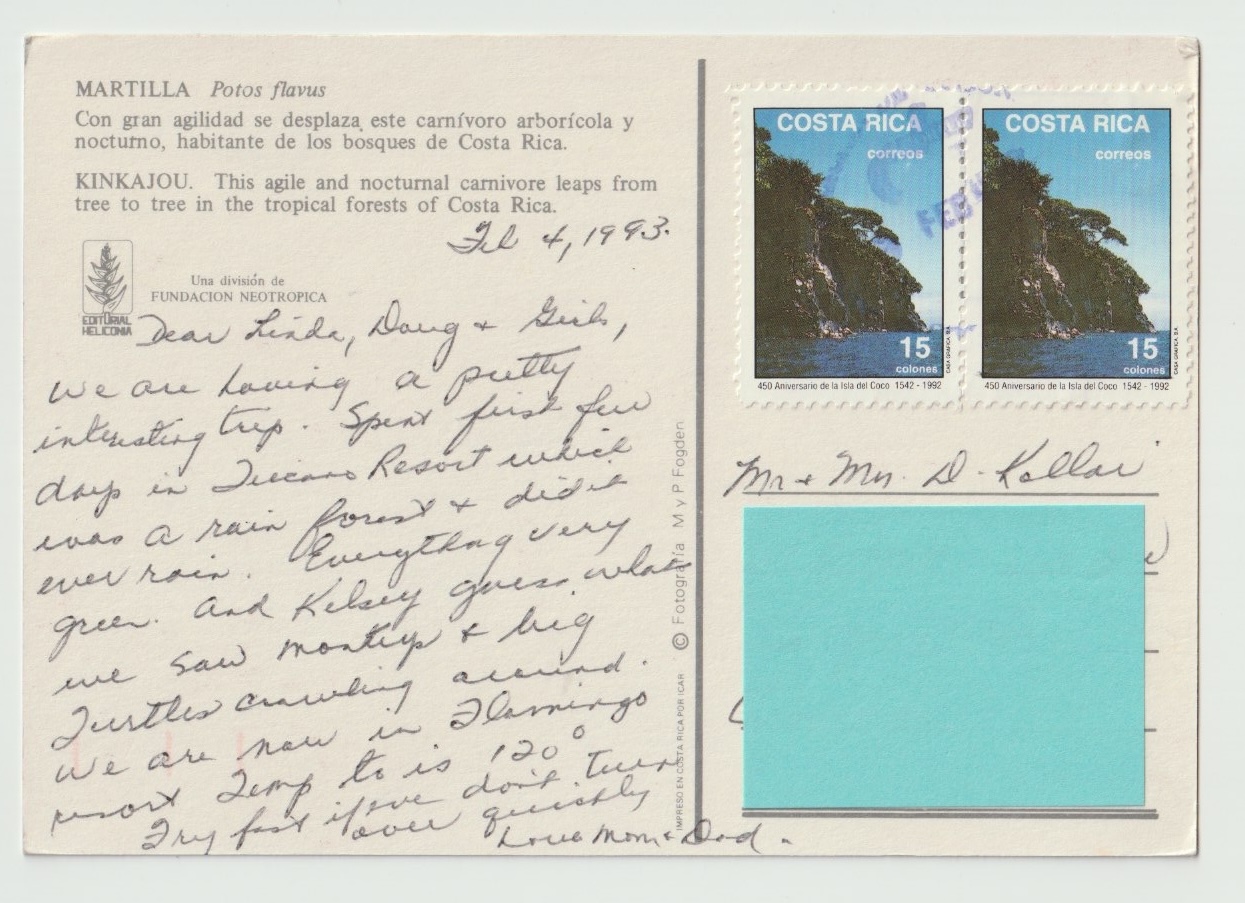 MARTILLA Potos flavus
Con gran agilidad se desplaza este carnívoro arborícola y
nocturno, habitante de los bosques de Costa Rica.
KINKAJOU. This agile and nocturnal carnivore leaps from
tree to tree in the tropical forests of Costa Rica.
Feb 4, 1993.
EDITORIAL
HELICONIA
Una división de
FUNDACION NEOTROPICA
Dear Linda, Doug + Girls,
we are having a pretty
interesting trip. Spent first few
days in Tucano Resort which
was a rain forest & did it
ever rain. Everything very
green. And Kelsey guess what
we saw monkeys & big
Turtles crawling around.
We are now in Flamingo
resort Temp to is 120°
Fry fast if we don't turn
over quickly
Love Mom & Dad.
© Fotografía M y P Fogden
IMPRESO EN COSTA RICA POR ICAR
COSTA RICA
correos
15
colones
CASA GRAFICA S.A.
450 Aniversario de la Isla del Coco 1542 - 1992
COSTA RICA
correos
15
colones
CASA GRAFICA S.A.
450 Aniversario de la Isla del Coco 1542 - 1992
FEB
Mr + Mrs. D. Kollar